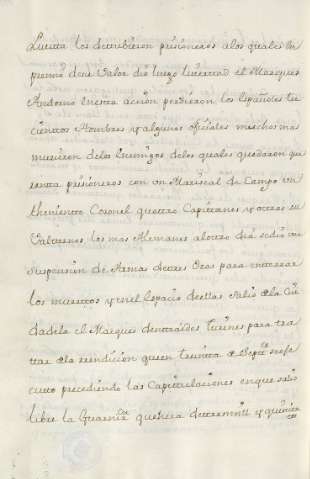 los detubieron prisioneros a los quales
dio luego livertad el Marques
Antonio en esta acción perdieron los Españoles tre
cientos Hombres y algunos oficiales muchos mas
murieron de los Enemigos de los quales quedaron qua
renta prisioneros con un Mariscal de Campo un
theniente Coronel quattro Capitanes y otros su
valternos los mas Alemanes al otro dia se dio una
suspension de Armas de tres Oras para enterrar
los muertos y en el espacio de ellas salio de la Ciu
dadela el Marques para tra
tar de la rendicion que en treinta de Sepre se efe
cuto precediendo las Capitulaciones en que salio
libre la Guarnon que era de y quinientos